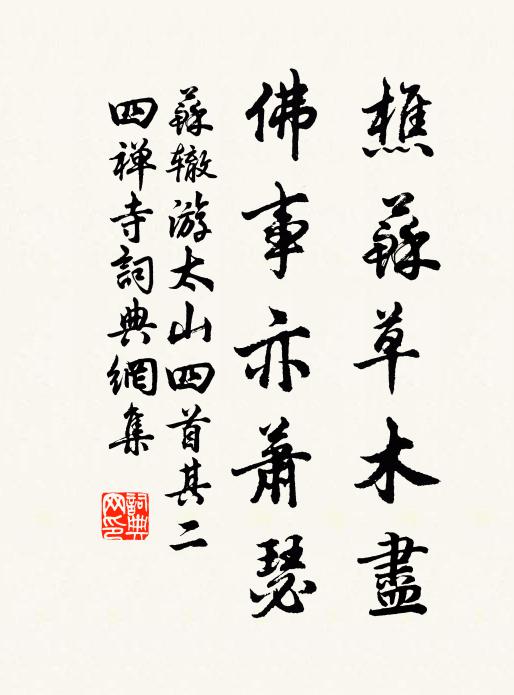 樵蘇草木盡
佛事亦蕭瑟
蘇辙游太山四首其二
四禅寺詞典網集
詞典網印